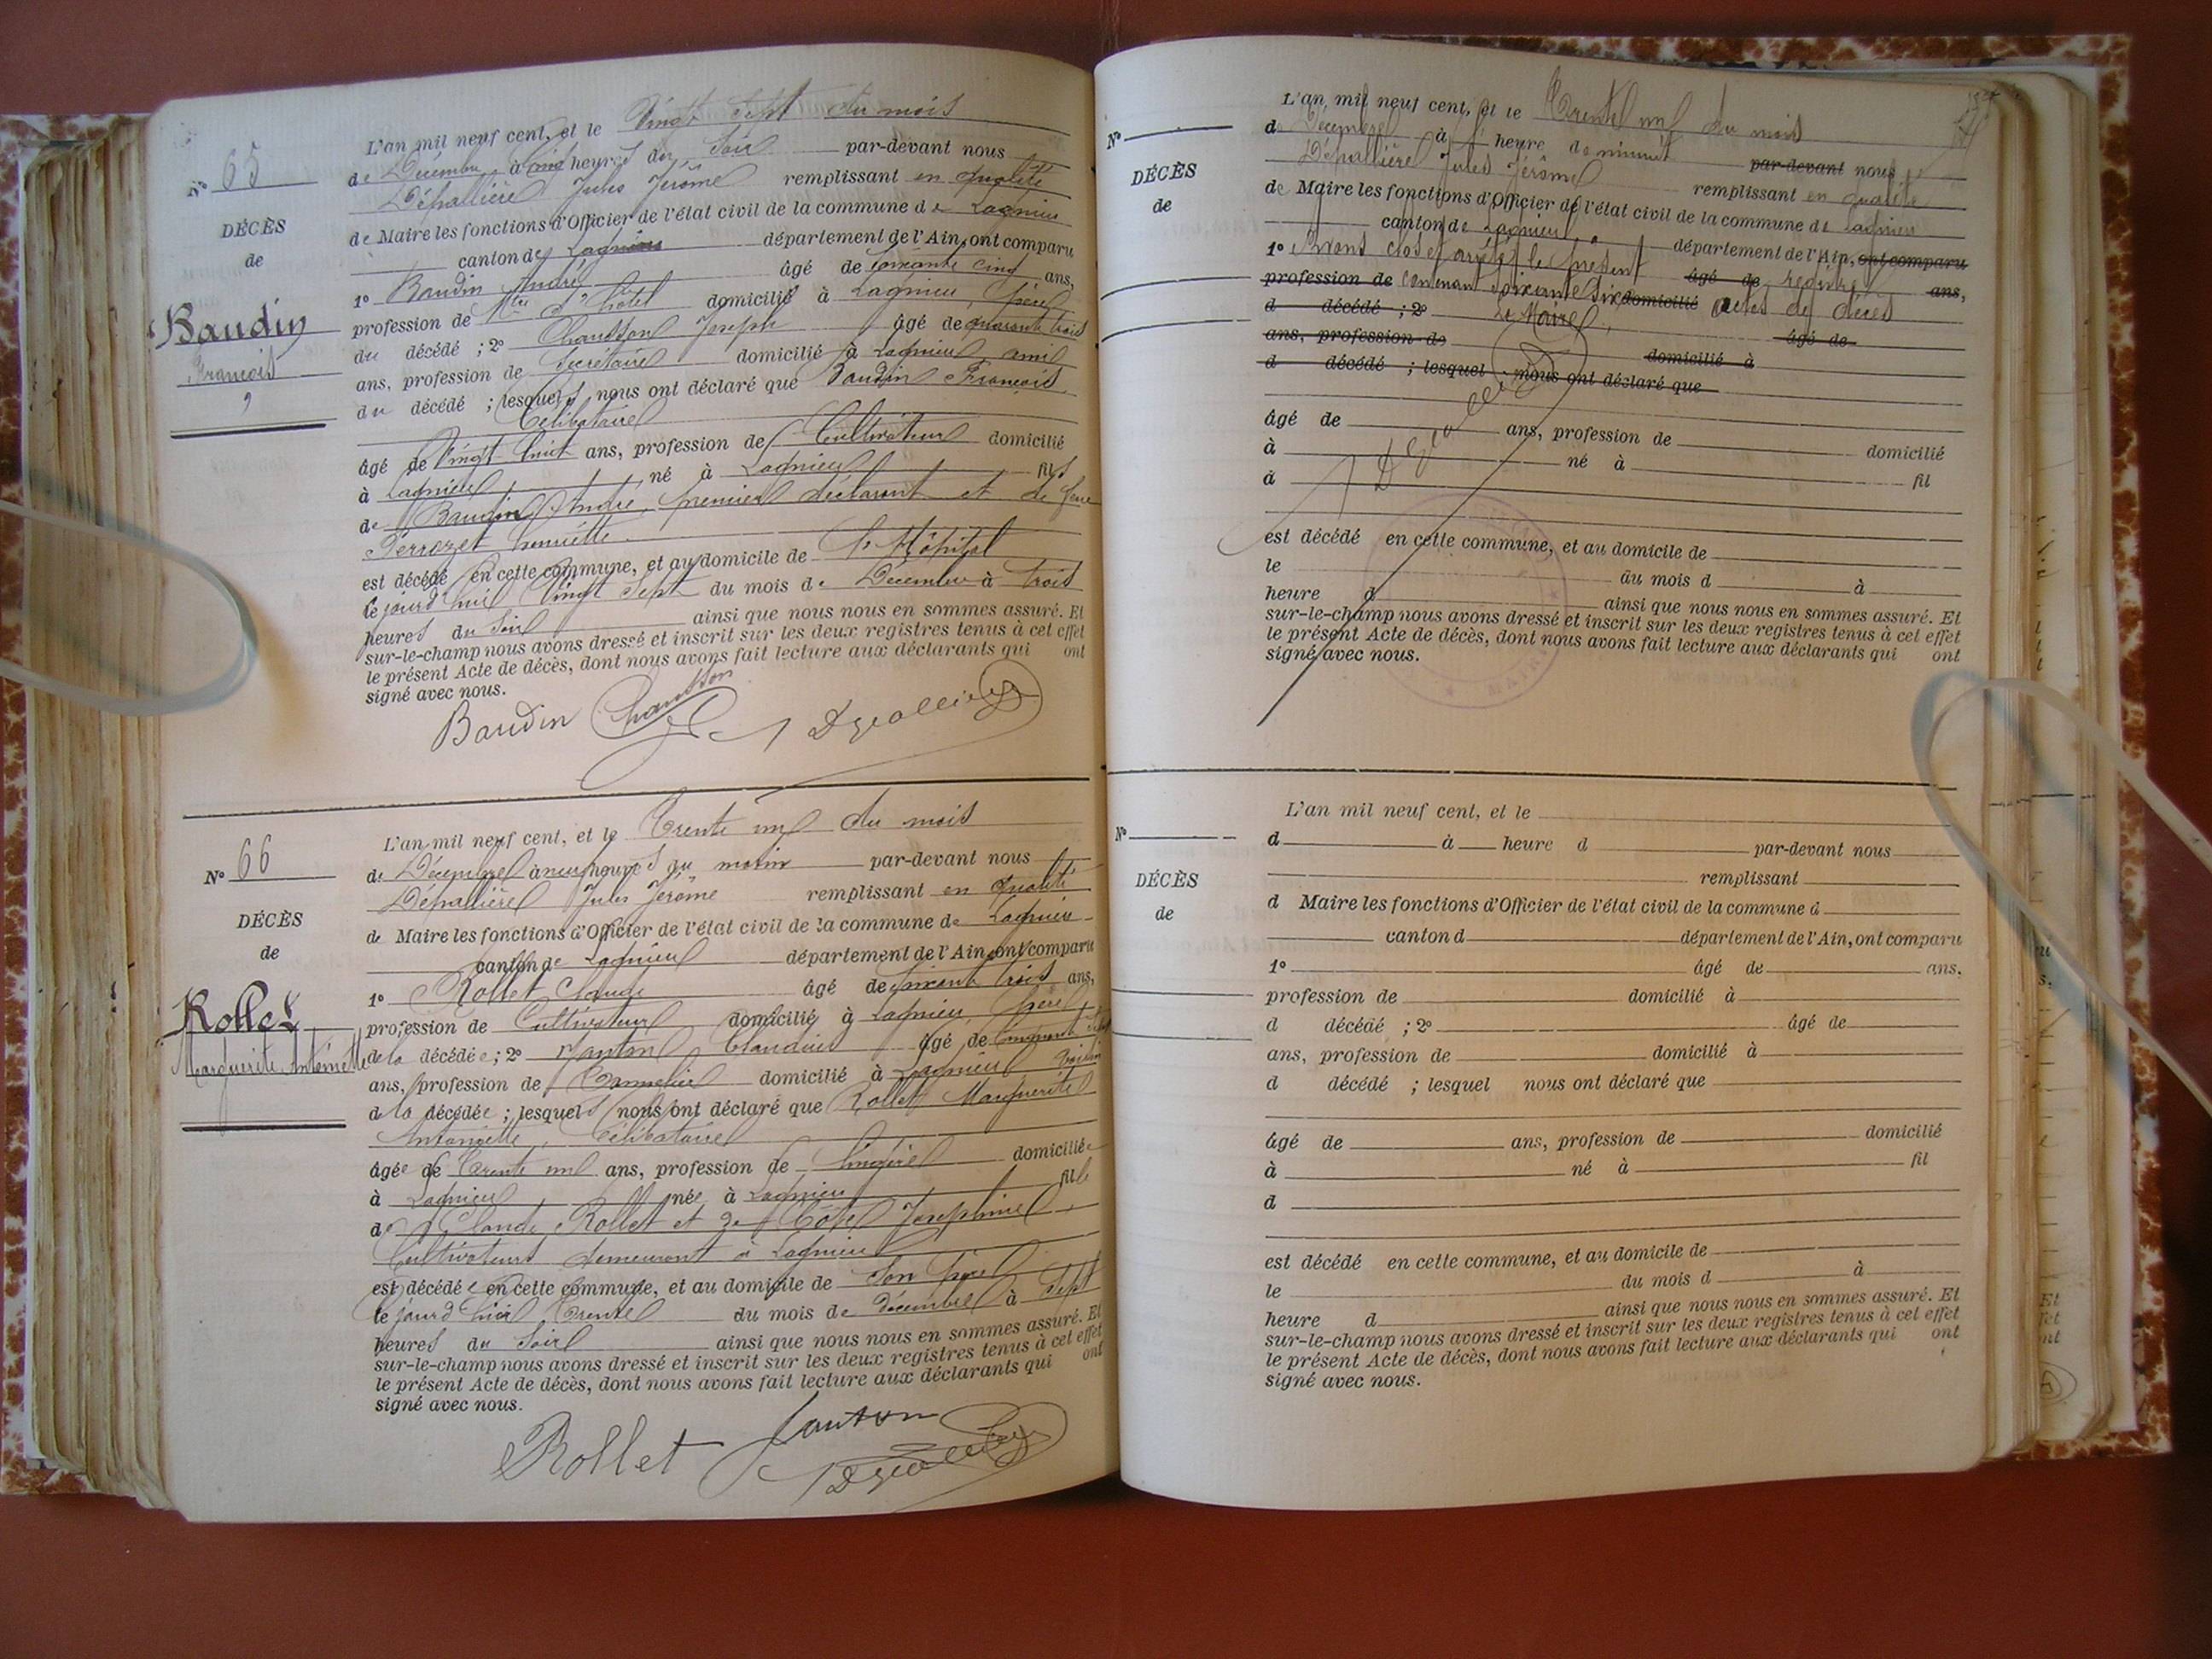 N° 65
DÉCÈS
de
Baudin
François
L'an mil neuf cent, et le Vingt Sept du mois
de Décembre à cinq heures du Soir par-devant nous
Dépallière Jules Jérôme remplissant en qualité
de Maire les fonctions d'Officier de l'état civil de la commune de Lagnieu
canton de Lagnieu département de l'Ain, ont comparu
1° Baudin André âgé de soixante cinq ans,
profession de Mtre d'hôtel domicilié à Lagnieu, père
du décédé ; 2° Chausson Joseph âgé de quarante trois
ans, profession de Secrétaire domicilié à Lagnieu ami
du décédé ; lesquels nous ont déclaré que Baudin François
Célibataire
âgé de Vingt huit ans, profession de Cultivateur domicilié
à Lagnieu né à Lagnieu fils
de Baudin André, premier déclarant et de feue
Perrozet henriette
est décédé en cette commune, et au domicile de l'Hôpital
le jourd'hui Vingt Sept du mois de Décembre à trois
heures du Soir ainsi que nous nous en sommes assuré. Et
sur-le-champ nous avons dressé et inscrit sur les deux registres tenus à cet effet
le présent Acte de décès, dont nous avons fait lecture aux déclarants qui ont
signé avec nous.
Baudin Chausson
N° 66
DÉCÈS
de
Rollet
Marguerite Antoinette
L'an mil neuf cent, et le Trente un du mois
de Décembre à neuf heures du matin par-devant nous
Dépallière Jules Jérôme remplissant en qualité
de Maire les fonctions d'Officier de l'état civil de la commune de Lagnieu
canton de Lagnieu département de l'Ain, ont comparu
1° Rollet Claude âgé de soixante trois ans,
profession de Cultivateur domicilié à Lagnieu, père
de la décédée ; 2° Jantin Claudius âgé de
ans, profession de Tonnelier domicilié à Lagnieu voisin
de la décédée ; lesquels nous ont déclaré que Rollet Marguerite
Antoinette, Célibataire
âgée de Trente un ans, profession de lingère domiciliée
à Lagnieu née à Lagnieu fille
de Claude Rollet et de Josephine,
Cultivateurs demeurant à Lagnieu
est décédée en cette commune, et au domicile de Son père
le jourd hier Trente du mois de décembre à Sept
heures du Soir ainsi que nous nous en sommes assuré. Et
sur-le-champ nous avons dressé et inscrit sur les deux registres tenus à cet effet
le présent Acte de décès, dont nous avons fait lecture aux déclarants qui ont
signé avec nous.
Rollet
N°
DÉCÈS
de
L'an mil neuf cent, et le Trente un du mois
de Décembre à heure de minuit par-devant nous
Dépallière Jules Jérôme remplissant en qualité
de Maire les fonctions d'Officier de l'état civil de la commune de Lagnieu
canton de Lagnieu département de l'Ain, ont comparu
1° Avons clos et arrêté le présent âgé de registre ans,
profession de contenant Soixante Six domicilié actes de décès
d décédé ; 2° Le Maire, âgé de
ans, profession de domicilié à
d décédé ; lesquel nous ont déclaré que
âgé de ans, profession de domicilié
à né à fil
d
est décédé en cette commune, et au domicile de
le du mois d à
heure d ainsi que nous nous en sommes assuré. Et
sur-le-champ nous avons dressé et inscrit sur les deux registres tenus à cet effet
le présent Acte de décès, dont nous avons fait lecture aux déclarants qui ont
signé avec nous.
N°
DÉCÈS
de
L'an mil neuf cent, et le
d à heure d par-devant nous
remplissant
d Maire les fonctions d'Officier de l'état civil de la commune d
canton d département de l'Ain, ont comparu
1° âgé de ans.
profession de domicilié à
d décédé ; 2° âgé de
ans, profession de domicilié à
d décédé ; lesquel nous ont déclaré que
âgé de ans, profession de domicilié
à né à fil
d
est décédé en cette commune, et au domicile de
le du mois d à
heure d ainsi que nous nous en sommes assuré. Et
sur-le-champ nous avons dressé et inscrit sur les deux registres tenus à cet effet
le présent Acte de décès, dont nous avons fait lecture aux déclarants qui ont
signé avec nous.